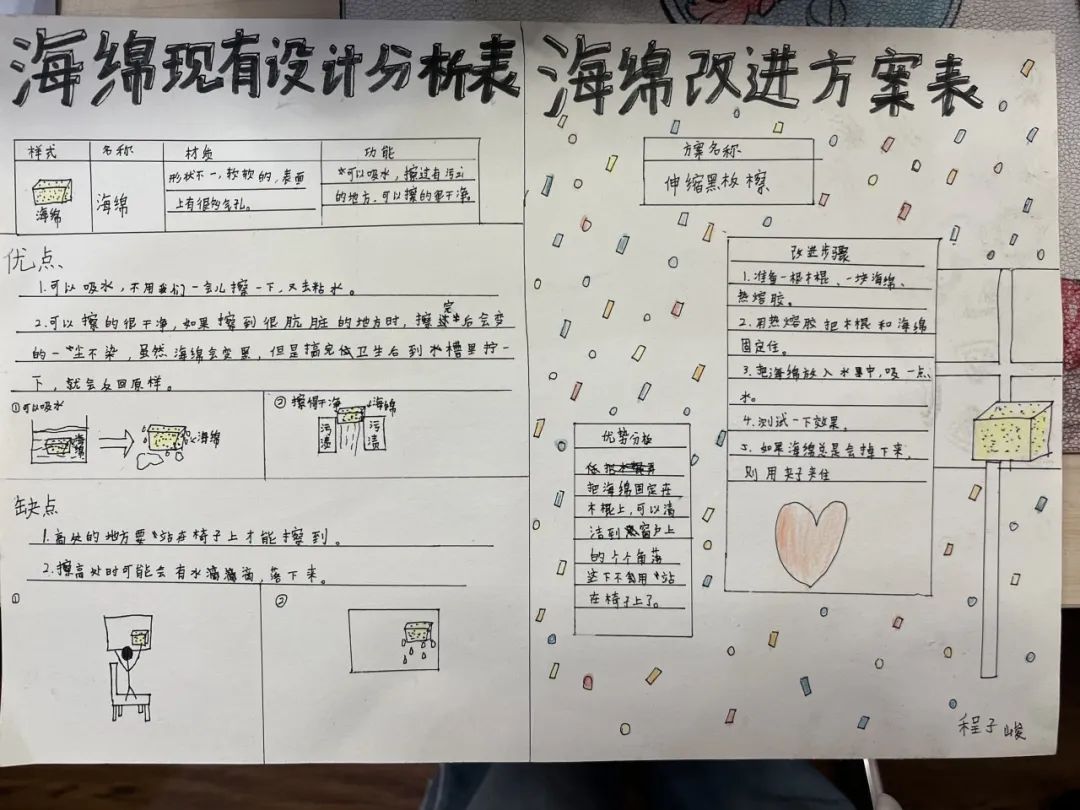 海绵现有设计分析表
样式 名称 材质 功能
海绵
海绵
形状不一，软软的，表面
上有很多气孔。
可以吸水，擦过有污
的地方，可以擦的很干净。
优点
1.可以吸水，不用我们一会儿擦一下，又去粘水。
2.可以擦的很干净，如果擦到很肮脏的地方时，擦完后会变
的一尘不染，虽然海绵会变黑，但是搞完做卫生后到水槽里拧一
下，就会反回原样。
①可以吸水
海绵
海绵
②擦得干净
海绵
污渍
污渍
缺点
1.高处的地方要站在椅子上才能擦到。
2.擦高处时可能会有水滴，落下来。
①
②
海绵改进方案表
方案名称
伸缩黑板擦
改进步骤
1.准备一根木棍、一块海绵、
热熔胶。
2.用热熔胶把木棍和海绵
固定住。
3.把海绵放入水里中，吸一点
水。
4.测试一下效果。
5.如果海绵总是会掉下来，
则用夹子夹住
优势分析
把海绵固定在
木棍上，可以清
洁到窗户上
的个个角落
这下不用站
在椅子上了。
程子峻